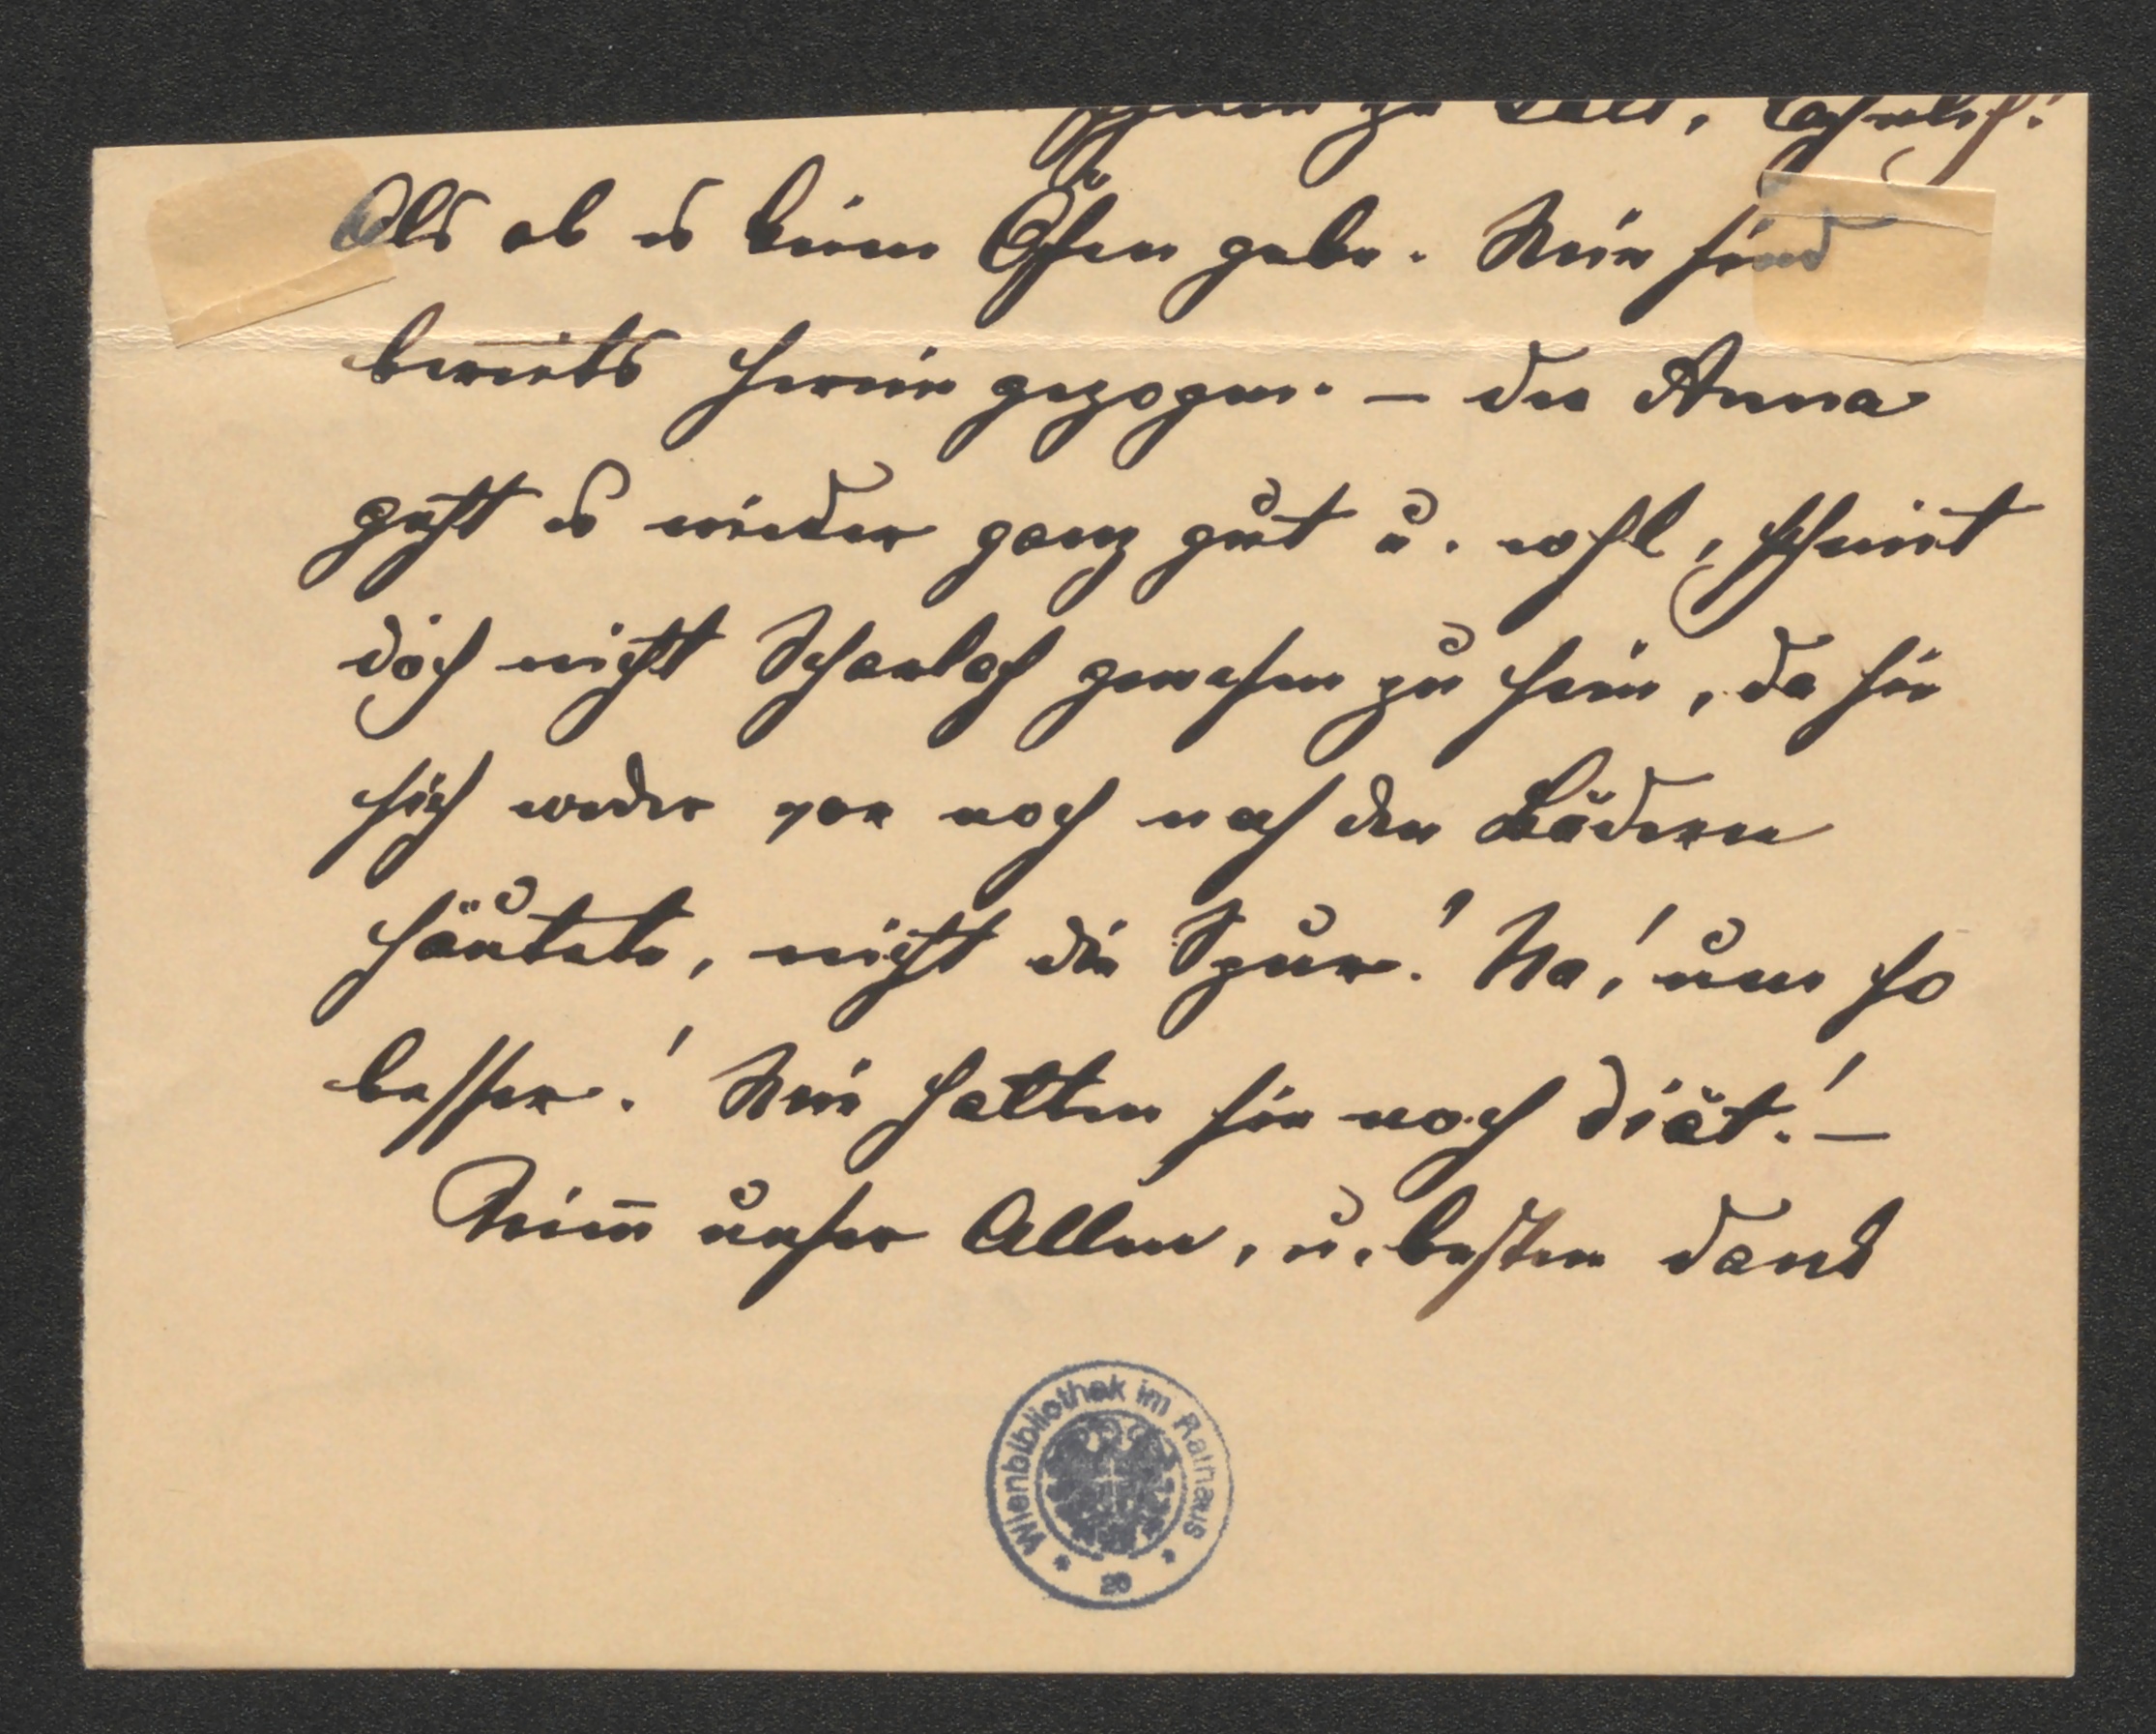 zu kalt,
Als ob es keine Öfen gebe. Wir sind
bereits herein gezogen. – Der Anna
geht es wieder ganz gut u. wohl, scheint
doch nicht Scharlach gewesen zu sein, da sie
sich weder vor noch nach den Bädern
häutete, nicht die Spur! Na! um so
besser! Wir hatten sie noch diät! –
Nim̄ unser Aller, u. besten Dank
Wienbibliothek im Rathaus
20